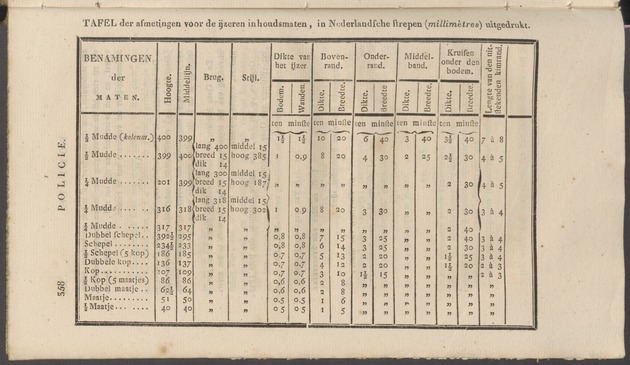 TAFEL der afmetingen voor de ijzeren inhoudsmaten, in Nederlandsche strepen (millimètres) uitgedrukt.
BENAMINGEN der MATEN. Hoogte. Middelijn. Brug. Stijl. Dikte van het ijzer. Boven-rand. Onder-rand. Middel-band. Kruisen onder den bodem. Lengte van den uit-stekenden kimrand.
Bodem. Wanden. Dikte. Breedte. Dikte. Breedte Dikte. Breedte. Dikte. Breedte
ten minste ten minste ten minste ten minste ten minste
½ Mudde (kolenm.) 400 399 „ „ 1½ 1½ 10 20 6 40 3 40 3½ 40 7 à 8
lang 400 middel 15
½ Mudde ....... 399 400 breed 15 hoog 385 1 0.9 8 20 4 30 2 25 2½ 30 4 à 5
dik 14
lang 300 middel 15
Mudde ....... 201 399 breed 15 hoog 187 „ „ „ „ „ „ „ „ 2 30 4 à 5
dik 15
lang 318 middel 15
¼ Mudde ....... 316 318 breed 15 hoog 302 1 0.9 8 20 3 30 „ „ 2 30 3 à 4
dik 14
Mudde ....... 317 317 „ „ „ „ „ „ „ „ „ „ 2 40 „
Dubbel schepel. 392½ 295 „ „ 0,8 0,8 7 15 3 25 „ „ 2 40 3 à 4
Schepel ........ 234½ 233 „ „ 0,8 0.8 6 14 3 25 „ „ 2 30 3 à 4
½ Schepel (5 kop) 186 185 „ „ 0.7 0,7 5 13 2 20 „ „ 1½ 25 3 à 4
Dubbele kop.. 136 137 „ „ 0.7 0,7 4 12 2 20 „ „ 1½ 20 2 à 3
Kop........... 107 109 „ „ 0.7 0,7 3 10 1½ 15 „ „ „ „ 2 à 3
½ Kop (5 maatjes) 86 86 „ „ 0,6 0,6 2 8 „ „ „ „ „ „ „
Dubbel maatje .. 62½ 64 „ „ 0,6 0,6 2 8 „ „ „ „ „ „ „
Maatje........ 51 50 „ „ 0.5 0.5 1 6 „ „ „ „ „ „ „
½ Maatje...... 40 40 „ „ 0 5 0 5 1 5 „ „ „ „ „ „ „
POLICIE.
558